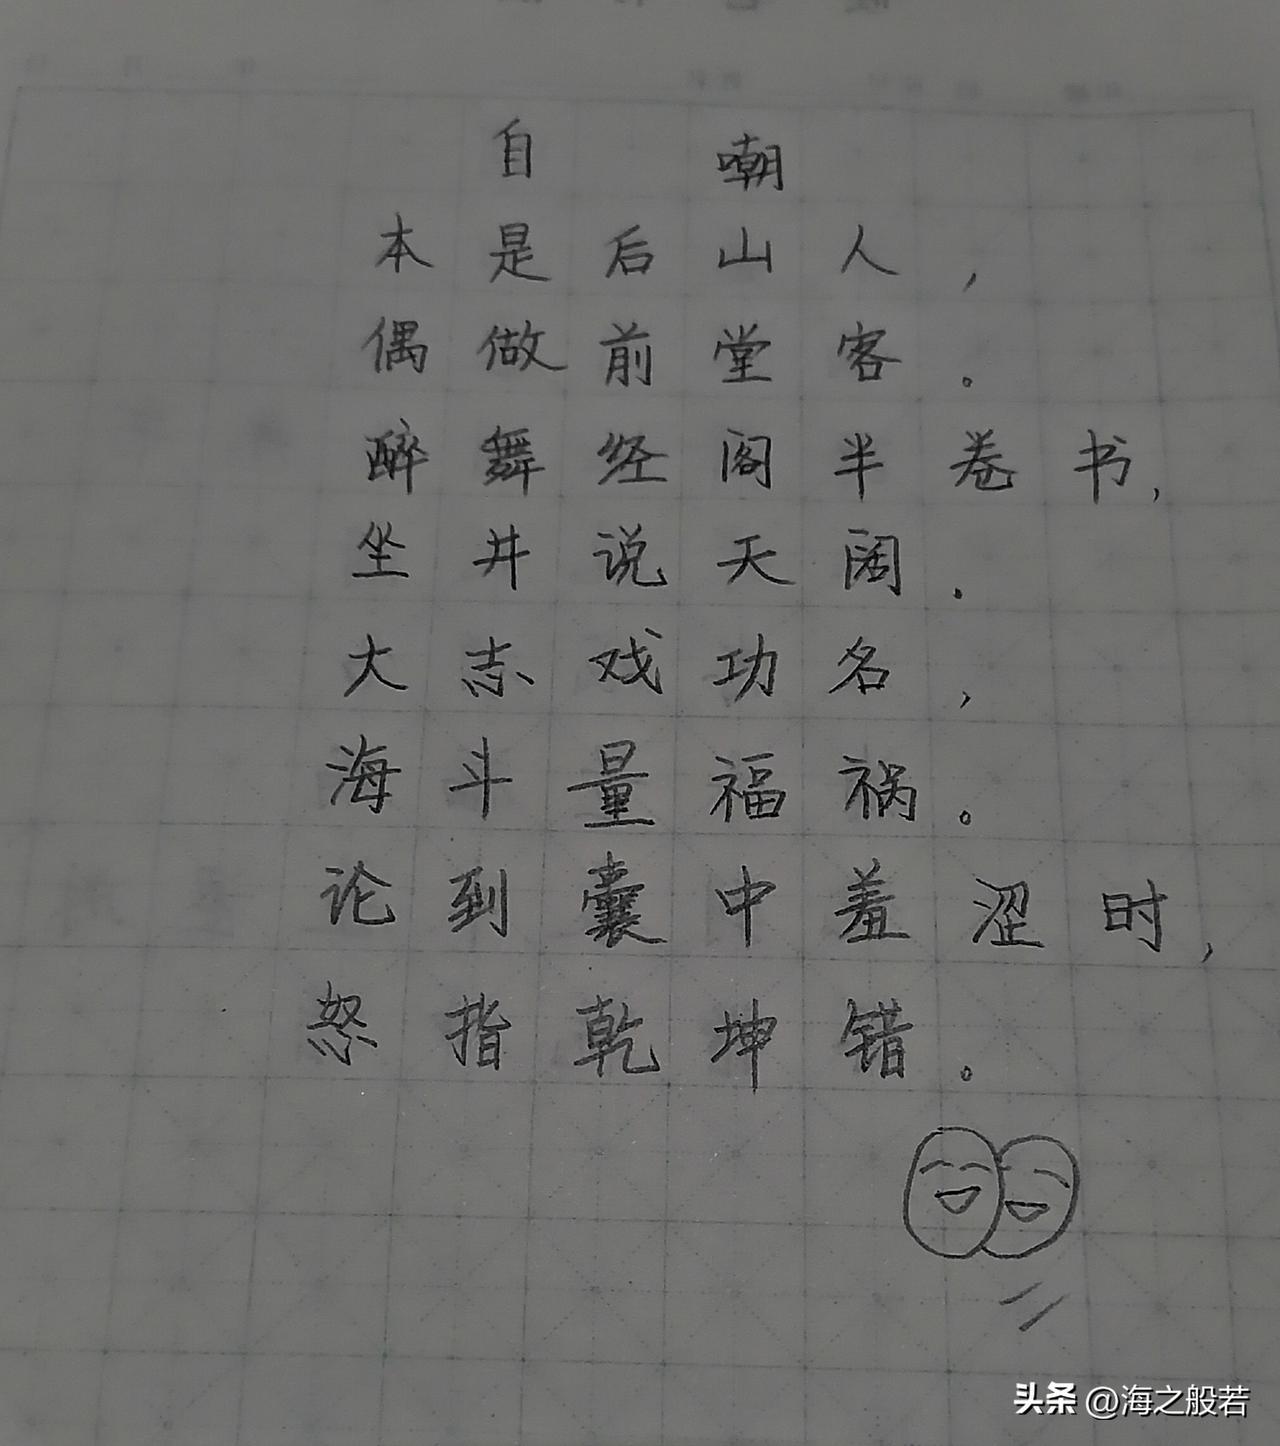 自嘲
本是后山人，
偶做前堂客。
醉舞经阁半卷书，
坐井说天阔.
大志戏功名，
海斗量福祸。
论到囊中羞涩时，
怒指乾坤错。
头条 @海之般若